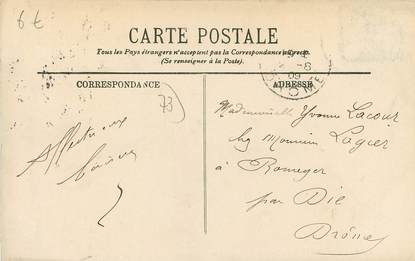 6 €
CARTE POSTALE
Tous les Pays étrangers n'acceptent pas la Correspondance au recto.
(Se renseigner à la Poste).
CORRESPONDANCE
73
ADRESSE
09
Affectueux
baisers
Mademoiselle Yvonne Lacour
chez Monsieur Lagier
à Romeyer
par Die
Drôme